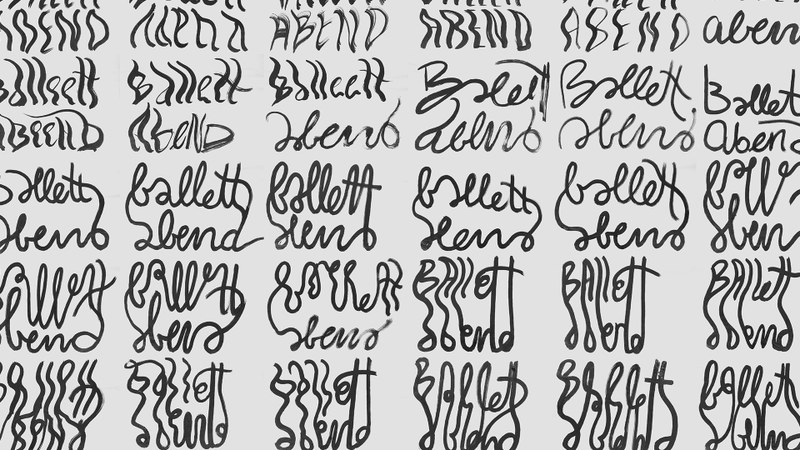 ABEND ABEND ABEND ABEND ABEND aben
Ballett Ballett Ballett Ballett Ballett Ballett
ABEND ABEND abend abend abend abend
ballett ballett ballett ballett ballett
abend abend abend abend abend aben
ballett ballett ballett BAllett BAllett BAllett
abend abend abend abend abend abend
ballett Ballett Ballett Ballett Ballett ballett
abend abend abend abend abend abend